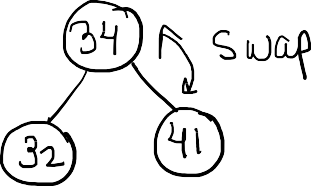 34 swap
32 41